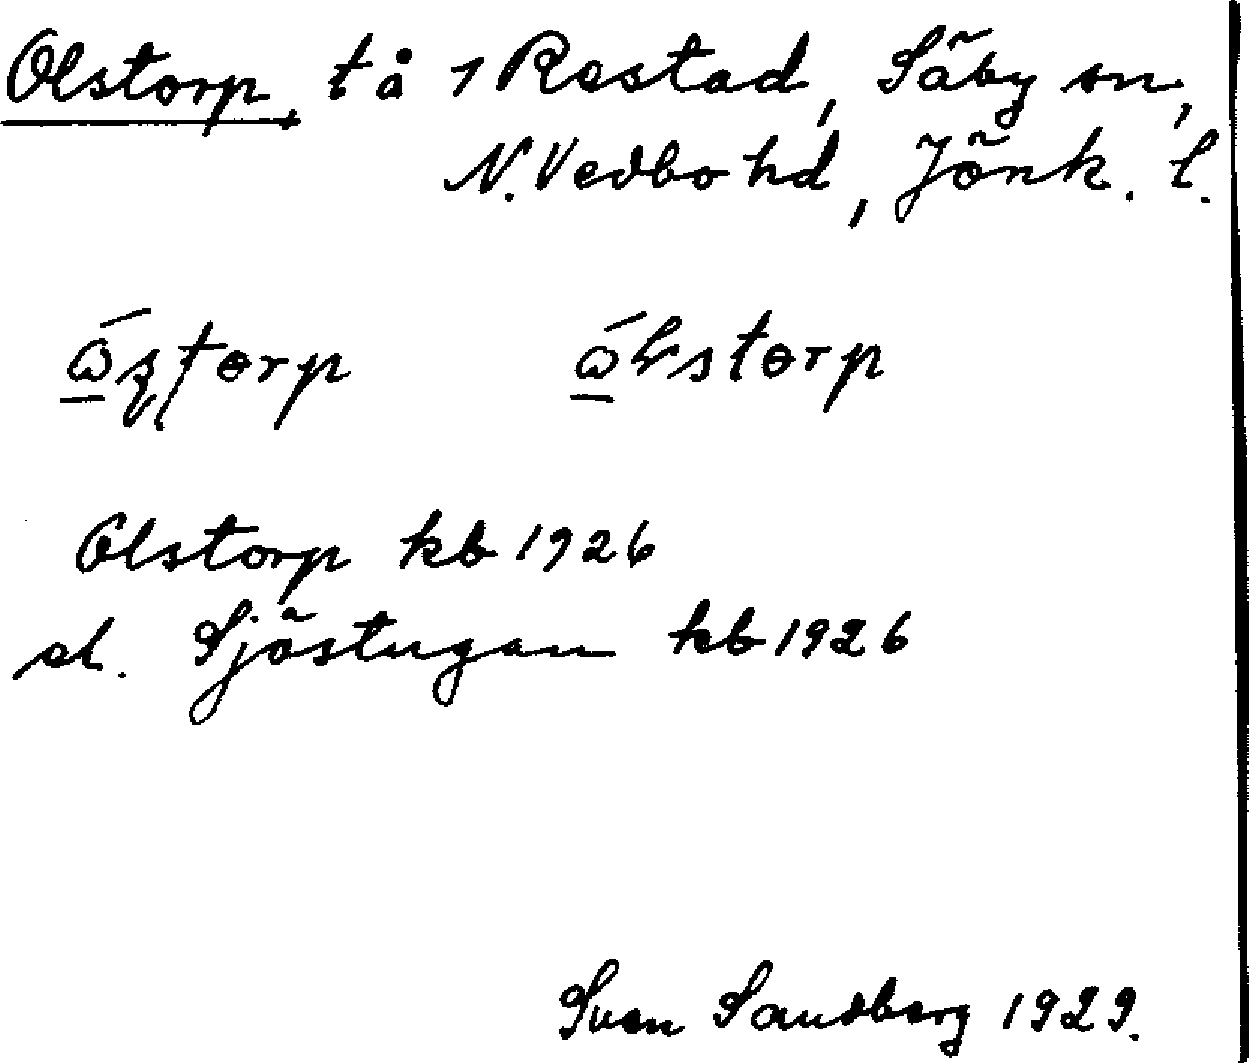 Olstorp, t å 1 Restad, Säby sn,
N. Vedbo hd, Jönk. l.
Olstorp kb 1926
el. Sjöstugan kb 1926
Sven Sandberg 1929.